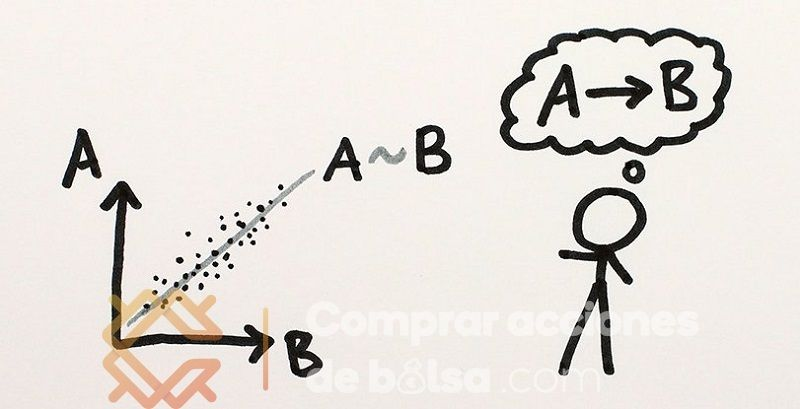 A → B
A
A ~ B
B
Comprar acciones
de bolsa.com